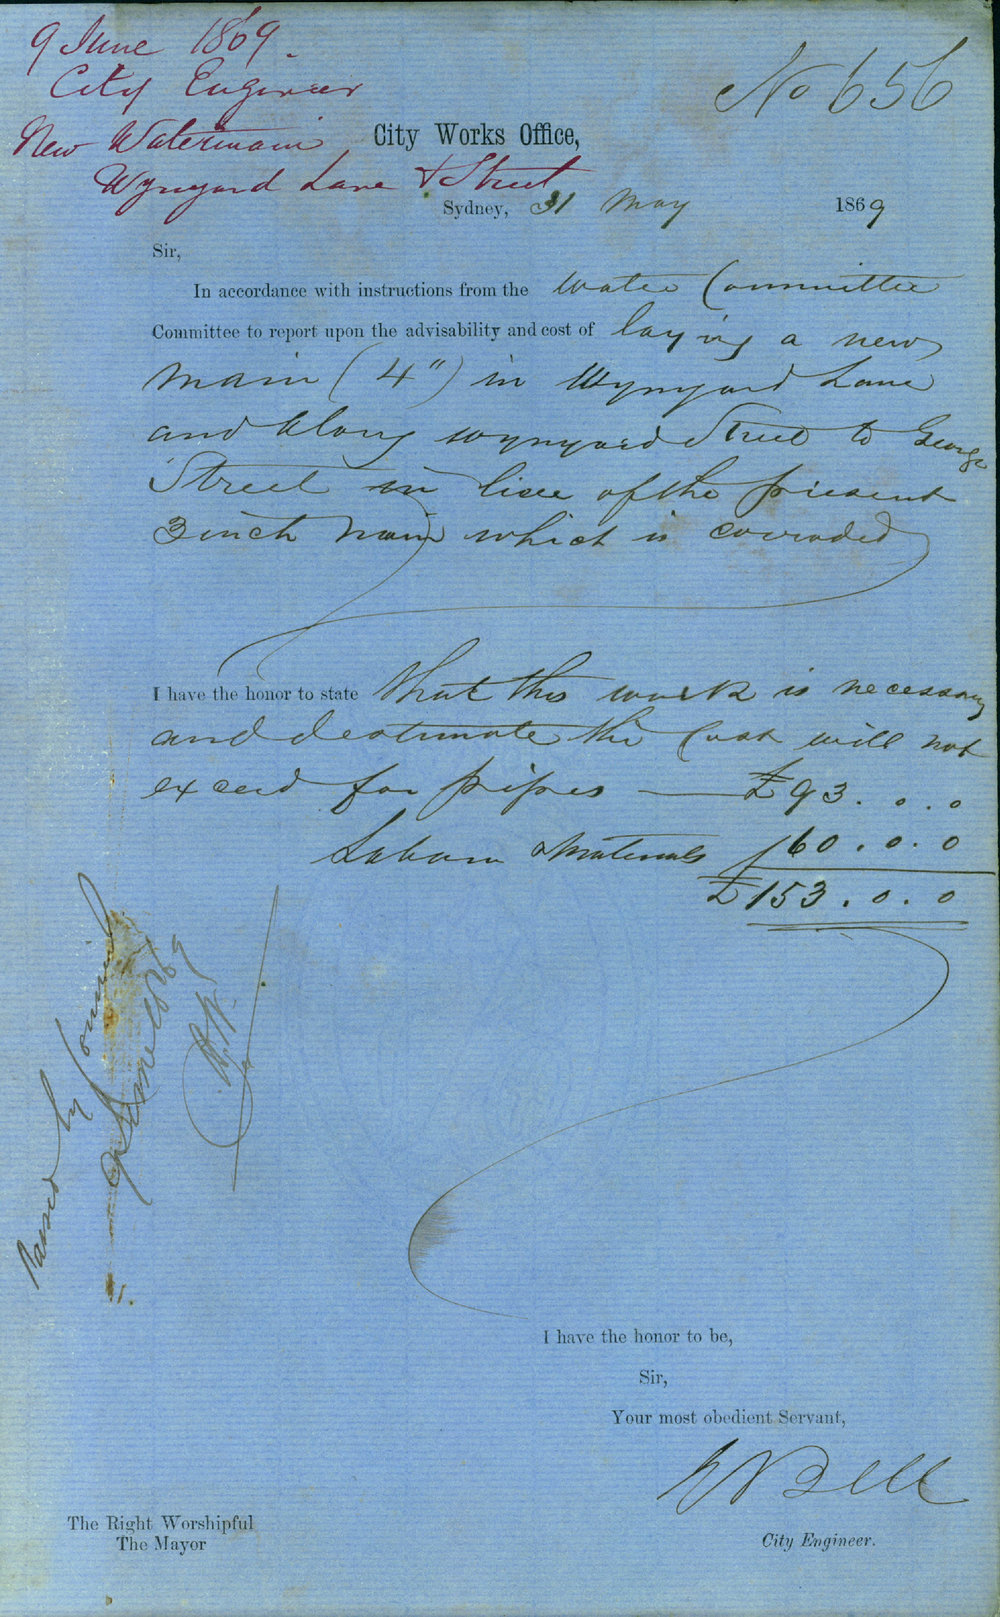 9 June 1869.
City Engineer
No 656
New Watermain
City Works Office,
Wynyard Lane & Street
Sydney, 31 May 1869
Sir,
In accordance with instructions from the Water Committee
Committee to report upon the advisability and cost of laying a new
main (4") in Wynyard Lane
and along Wynyard Street to George
Street in lieu of the present
3 inch main which is corroded
I have the honor to state that this work is necessary
and I estimate the Cost will not
exceed for pipes — £93 . 0 . 0
Labour & Materials 60 . 0 . 0
£153 . 0 . 0
Passed by Council
June 1869
I have the honor to be,
Sir,
Your most obedient Servant,
E Bell
The Right Worshipful
The Mayor
City Engineer.